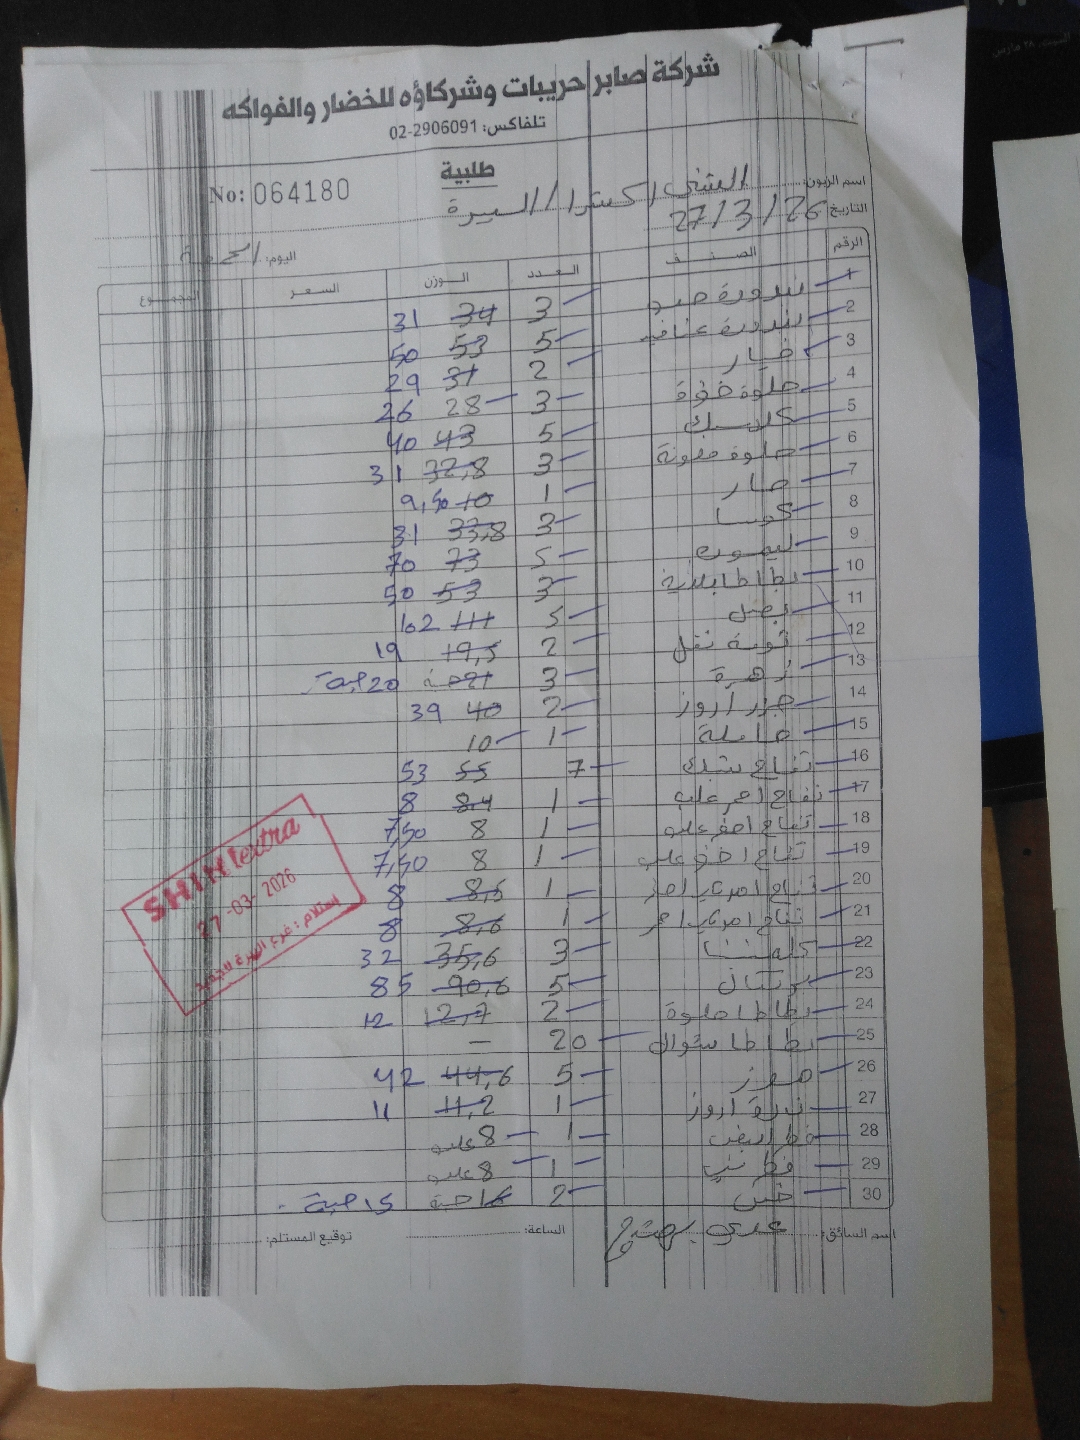 شركة صابر حريبات وشركاؤه للخضار والفواكه
تلفاكس: 02-2906091
طلبية
No: 064180
اسم الزبون: الشني اكسترا / البيرة
التاريخ 27/3/26
اليوم: الجمعة
الرقم الصنف العدد الوزن السعر المجموع
1 بندورة 3 34 31
2 بندورة عناقيد 5 53 50
3 خيار 2 31 29
4 حلوة 3 28 26
5 5 43 40
6 حلوة ملونة 3 32,8 31
7 حار 1 10 9,50
8 كوسا 3 33,8 31
9 ليمون 5 73 70
10 بطاطا 3 53 50
11 بصل 5 111 102
12 2 19,5 19
13 زهرة 3 21 حبة 20 حبة
14 جزر اروز 2 40 39
15 1 10
16 تفاح 7 55 53
17 تفاح احمر علب 1 8.4 8
18 تفاح اصفر علب 1 8 7,50
19 تفاح اخضر علب 1 8 7,50
20 تفاح 1 8,5 8
21 تفاح 1 8,6 8
22 كلمنتينا 3 35,6 32
23 برتقال 5 90,6 85
24 بطاطا حلوة 2 12,7 12
25 بطاطا شوال 20 —
26 موز 5 44,6 42
27 اروز 1 11,2 11
28 فطر ابيض 1 8 علب
29 فطر بني 1 8 علب
30 خس 2 16 حبة 15 حبة
SHINI extra
27-03-2026
إستلام: فرع البيرة الجديد
اسم السائق: عدي
الساعة:
توقيع المستلم: